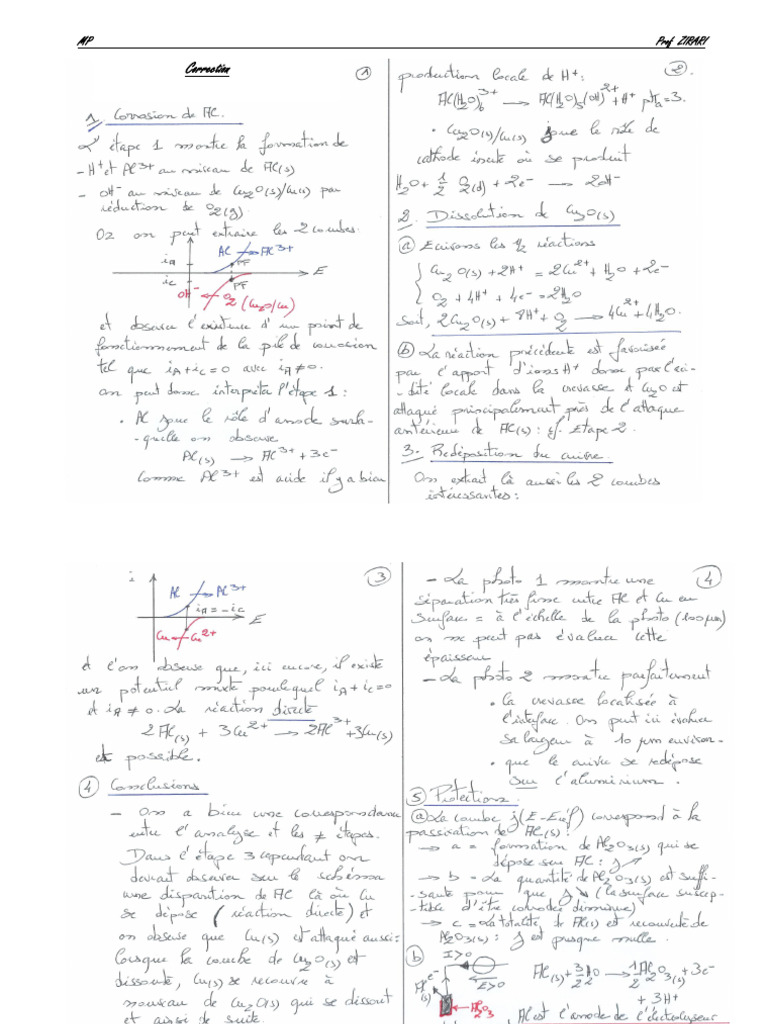 MP
Prof ZIRARI
Correction
1
1. Corrosion de Al.
L'étape 1 montre la formation de
- H⁺ et Al³⁺ au niveau de Al(s)
- OH⁻ au niveau de Cu₂O(s)/Cu(s) par
réduction de O₂(g).
Or on peut extraire les 2 courbes
iA
Al → Al³⁺
E
PF
iC
PF
OH⁻ ← O₂ (Cu₂O/Cu)
et observer l'existence d'un point de
fonctionnement de la pile de corrosion
tel que iA + iC = 0 avec iA ≠ 0.
on peut donc interpréter l'étape 1 :
• Al joue le rôle d'anode sur la-
-quelle on observe
Al(s) → Al³⁺ + 3e⁻
Comme Al³⁺ est acide il y a bien
2
production locale de H⁺ :
Al(H₂O)₆³⁺ → Al(H₂O)₅(OH)²⁺ + H⁺ pKa = 3.
• Cu₂O(s)/Cu(s) joue le rôle de
cathode inerte où se produit
H₂O + 1/2 O₂(d) + 2e⁻ → 2OH⁻
2. Dissolution de Cu₂O(s)
a Ecrivons les 1/2 réactions
Cu₂O(s) + 2H⁺ = 2Cu²⁺ + H₂O + 2e⁻
O₂ + 4H⁺ + 4e⁻ = 2H₂O
Soit, 2Cu₂O(s) + 8H⁺ + O₂ → 4Cu²⁺ + 4H₂O.
b La réaction précédente est favorisée
par l'apport d'ions H⁺ donc par l'aci-
dité locale dans la crevasse et Cu₂O est
attaqué principalement près de l'attaque
antérieure de Al(s) : cf. Etape 2.
3. Redéposition du cuivre
On extrait là aussi les 2 courbes
intéressantes :
3
i
Al → Al³⁺
iA = -iC
E
Cu ← Cu²⁺
et l'on observe que, ici encore, il existe
un potentiel mixte pour lequel iA + iC = 0
et iA ≠ 0. La réaction directe
2Al(s) + 3Cu²⁺ → 2Al³⁺ + 3Cu(s)
est possible.
4 Conclusions
- On a bien une correspondance
entre l'analyse et les ≠ étapes.
Dans l'étape 3 cependant on
devrait observer sur le schéma
une disparition de Al là où Cu
se dépose (réaction directe) et
on observe que Cu(s) est attaqué aussi :
Lorsque la courbe de Cu₂O(s) est
dissoute, Cu(s) se recouvre à
nouveau de Cu₂O(s) qui se dissout
et ainsi de suite.
4
- La photo 1 montre une
séparation très fine entre Al et Cu en
surface = à l'échelle de la photo (100 µm)
on ne peut pas évaluer cette
épaisseur
- La photo 2 montre parfaitement
• la crevasse localisée à
l'interface. On peut ici évaluer
sa largeur à 10 µm environ.
• que le cuivre se redépose
sur l'aluminium.
5 Protections :
a La courbe j(E - Eréf) correspond à la
passivation de Al(s) :
→ a = formation de Al₂O₃(s) qui se
dépose sur Al : j ↗
→ b = La quantité de Al₂O₃(s) est suffi-
sante pour que j ↘ (la surface suscep-
tible d'être corrodée diminue)
→ c = La totalité de Al(s) est recouverte de
Al₂O₃(s) : j est presque nulle.
b
I>0
e⁻
E>0
Al(s)
Al₂O₃
Al(s) + 3/2 H₂O → 1/2 Al₂O₃(s) + 3e⁻
+ 3H⁺
Al est l'anode de l'électrolyseur